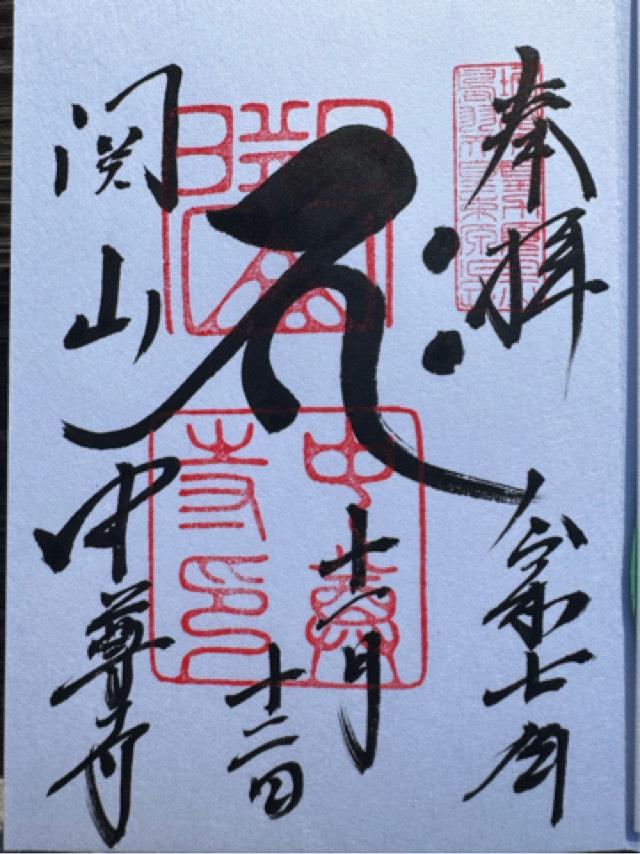 奉拝
令和七年
十一月
十二日
関山
中尊寺
中尊
寺印